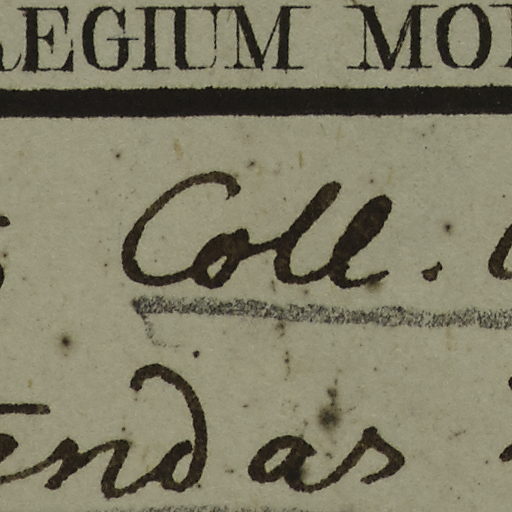 REGIUM MO
Coll.
end as